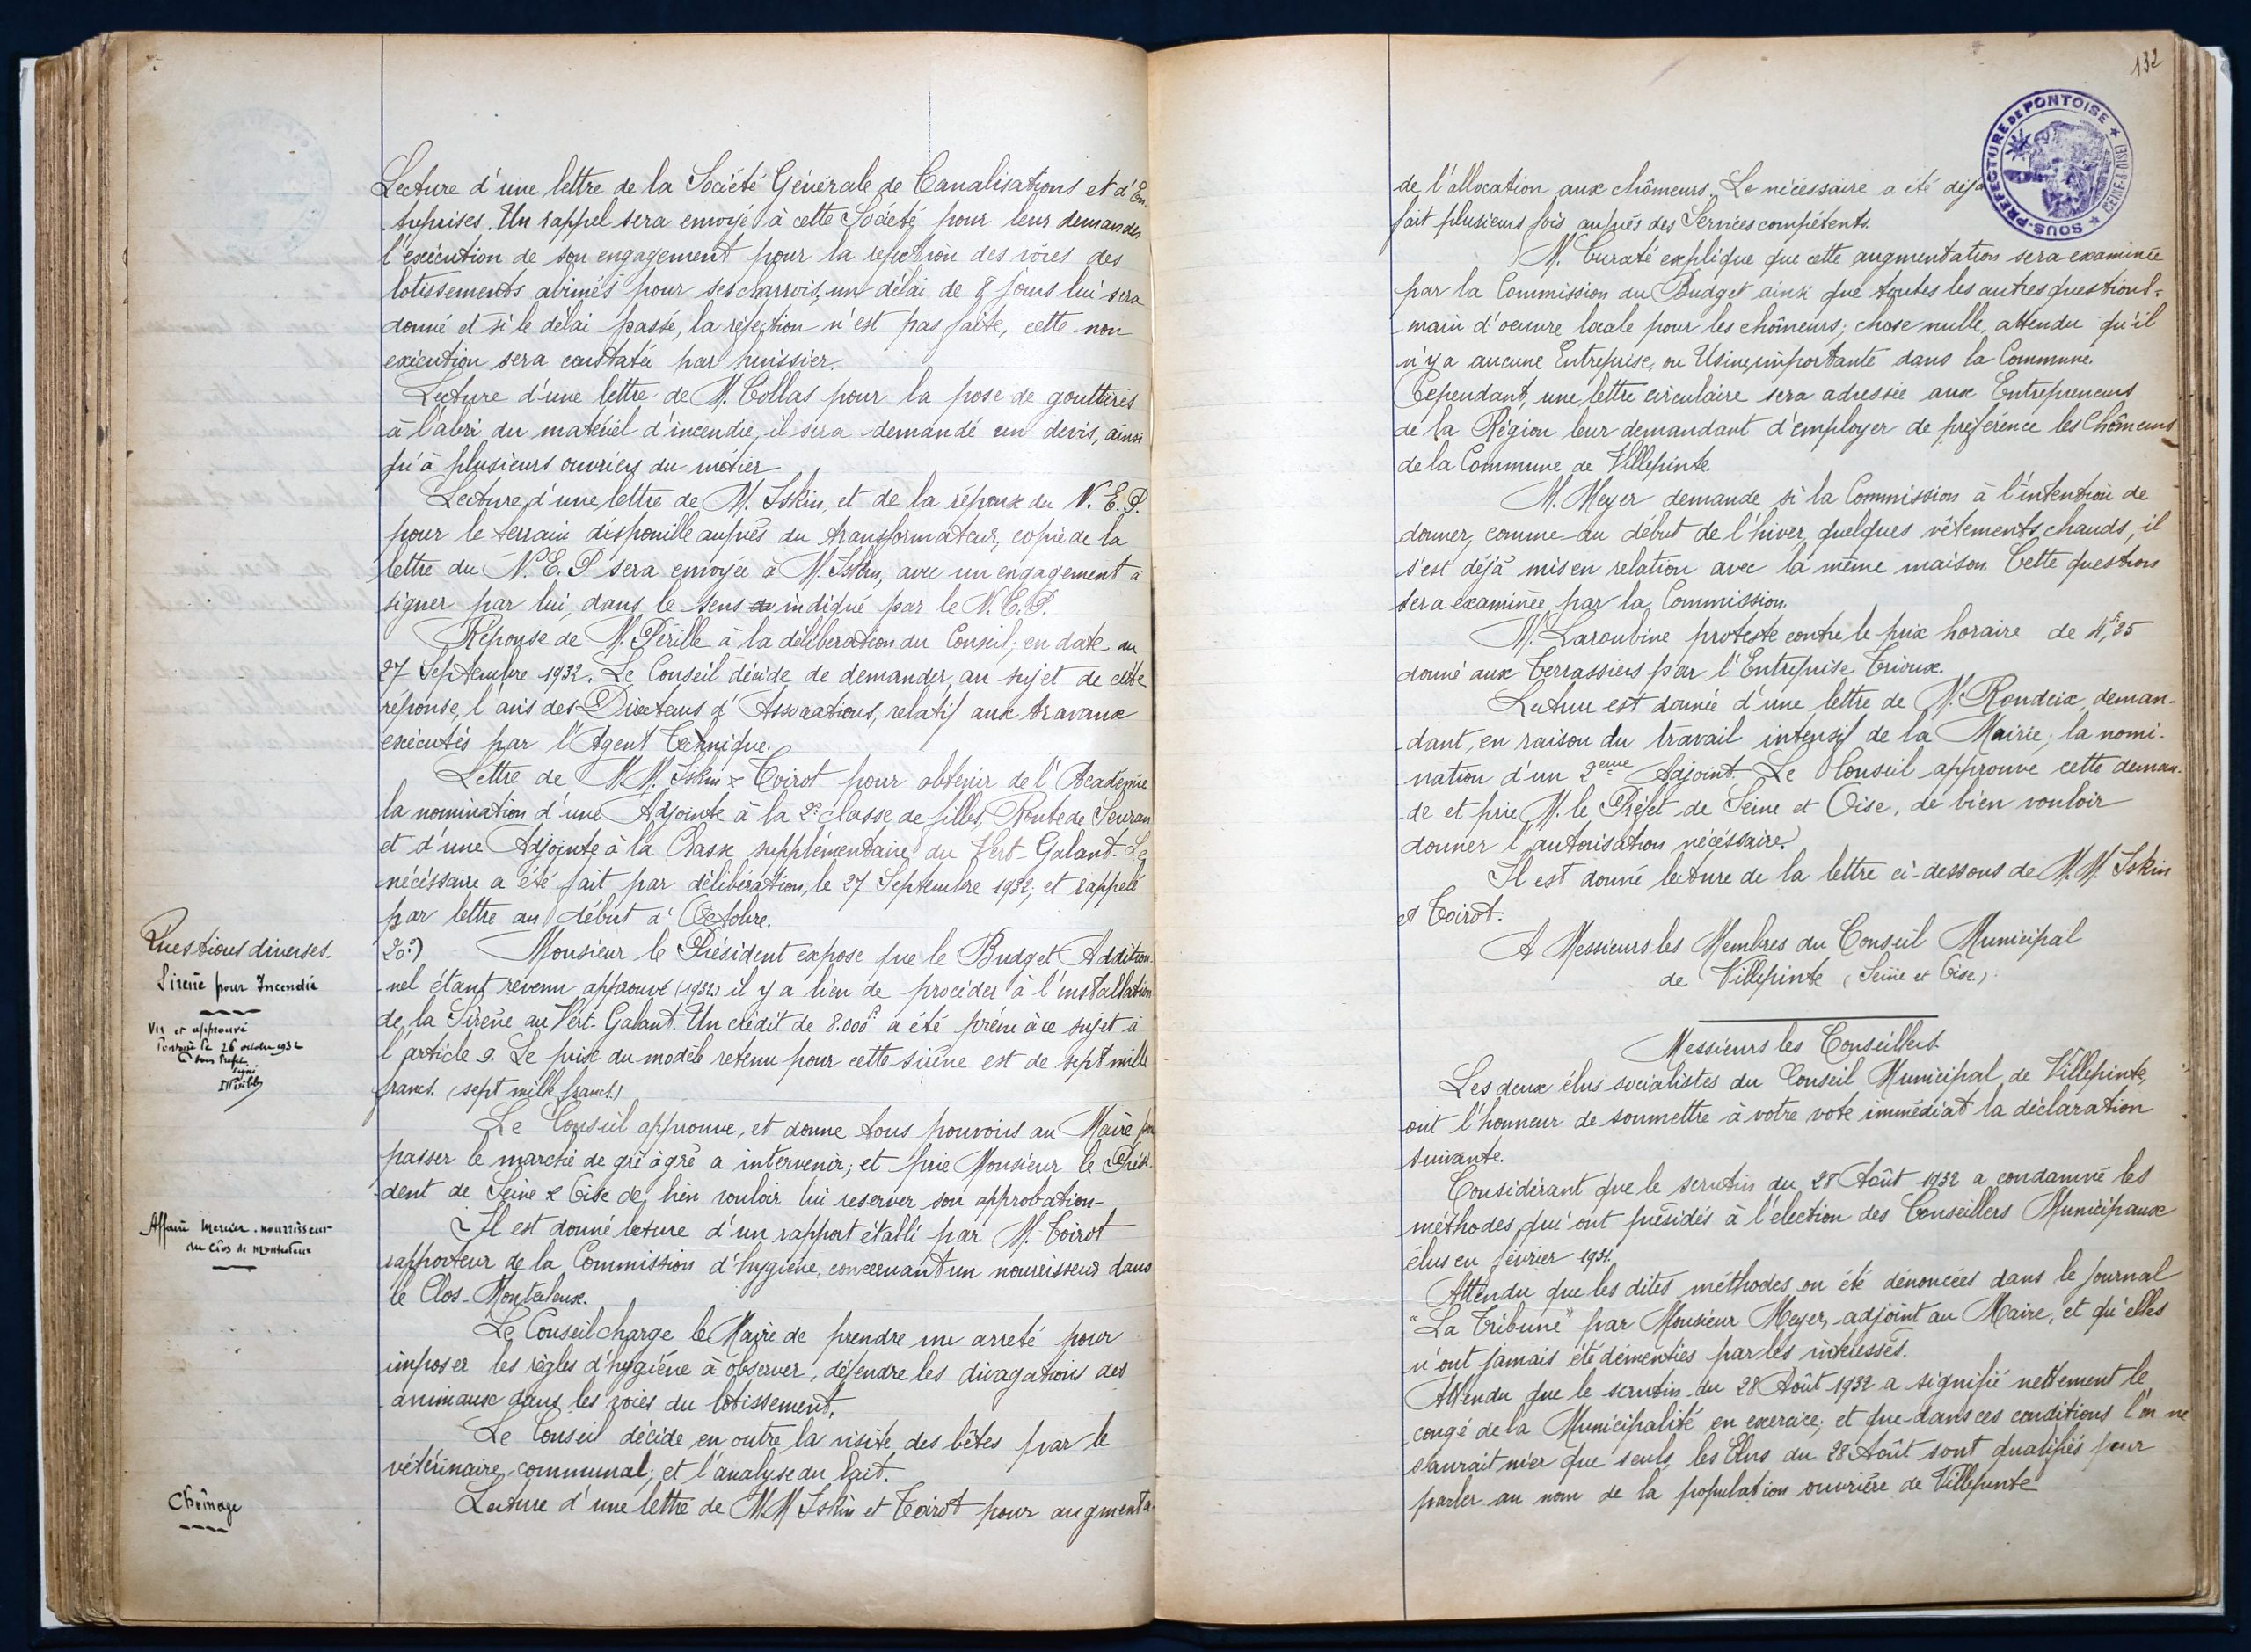 Lecture d'une lettre de la Société Générale de Canalisations et d'En-
treprises. Un rappel sera envoyé à cette Société pour leur demander
l'exécution de son engagement pour la refection des voies des
lotissements abimés pour ses charrois, un délai de 8 jours lui sera
donné et si le délai passé, la réfection n'est pas faite, cette non
exécution sera constatée par huissier.
Lecture d'une lettre de M. Collas pour la pose de gouttières
à l'abri du matériel d'incendie, il sera demandé un devis, ainsi
qu'à plusieurs ouvriers du métier
Lecture d'une lettre de M. Iskin, et de la réponse du N.E.P.
pour le terrain disponible auprès du transformateur, copie de la
lettre du N.E.P sera envoyée à M. Iskin, avec un engagement à
signer par lui, dans le sens de indiqué par le N.E.P.
Réponse de M. Pérille à la délibération du Conseil, en date du
27 Septembre 1932. Le Conseil décide de demander, au sujet de cette
réponse, l'avis des Directeurs d'Associations, relatif aux travaux
exécutés par l'Agent Technique.
Lettre de M.M. Iskin & Toirot pour obtenir de l'Académie
la nomination d'une Adjointe à la 2e classe de filles, Route de Sevran
et d'une Adjointe à la Classe supplémentaire du Vert-Galant. Le
nécéssaire a été fait par délibération, le 27 Septembre 1932, et rappelé
par lettre au début d'Octobre.
Questions diverses.
Sirène pour Incendie
Vu et approuvé
Pontoise le 26 octobre 1932
Le Sous Préfet
Signé
2o:) Monsieur le Président expose que le Budget Addition-
nel étant revenu approuvé (1932) il y a lieu de procéder à l'installation
de la Sirène au Vert-Galant. Un crédit de 8.000f a été prévu à ce sujet à
l'article 9. Le prix du modèle retenu pour cette sirène est de sept mille
francs. (sept mille francs.)
Le Conseil approuve, et donne tous pouvoirs au Maire pr
passer le marché de gré à gré a intervenir, et prie Monsieur le Prési-
dent de Seine & Oise de bien vouloir lui reserver son approbation-
Affaire Mercier. nourrisseur
au Clos de Montceleux
Il est donné lecture d'un rapport établi par M. Toirot
rapporteur de la Commission d'hygiène, concernant un nourrisseur dans
le Clos-Montceleux.
Le Conseil charge le Maire de prendre un arreté pour
imposer les règles d'hygiène à observer, défendre les divagations des
animaux dans les voies du lotissement.
Le Conseil décide en outre la visite des bêtes par le
vétérinaire communal, et l'analyse du lait.
Chômage
Lecture d'une lettre de M.M Iskin et Toirot pour augmenta-
132
SOUS-PREFECTURE DE PONTOISE
(SEINE-&-OISE)
de l'allocation aux chômeurs. Le nécéssaire a été déjà
fait plusieurs fois auprès des Services compétents.
M. Curaté explique que cette augmentation sera examinée
par la Commission du Budget ainsi que toutes les autres questions.
main d'oeuvre locale pour les chômeurs; chose nulle, attendu qu'il
n'y a aucune Entreprise, ou Usine importante dans la Commune.
Cependant, une lettre circulaire sera adressée aux Entrepreneurs
de la Région leur demandant d'employer de préférence les Chômeurs
de la Commune de Villepinte.
M. Meyer demande si la Commission à l'intention de
donner, comme au début de l'hiver, quelques vêtements chauds, il
s'est déjà mis en relation avec la même maison. Cette question
sera examinée par la Commission.
M. Laroubine proteste contre le prix horaire de 4f,25
donné aux Terrassiers par l'Entreprise Trioux.
Lecture est donnée d'une lettre de M. Rondeix, deman-
dant, en raison du travail intensif de la Mairie, la nomi-
nation d'un 2eme Adjoint. Le Conseil approuve cette deman-
de et prie M. le Préfet de Seine et Oise, de bien vouloir
donner l'autorisation nécéssaire.
Il est donné lecture de la lettre ci-dessous de M.M. Iskin
et Toirot.
A Messieurs les Membres du Conseil Municipal
de Villepinte (Seine et Oise.)
Messieurs les Conseillers.
Les deux élus socialistes du Conseil Municipal de Villepinte,
ont l'honneur de soumettre à votre vote immédiat la déclaration
suivante.
Considérant que le scrutin du 28 Août 1932 a condamné les
méthodes qui ont présidés à l'élection des Conseillers Municipaux
élus en février 1931.
Attendu que les dites méthodes on été dénoncées dans le journal
"La Tribune" par Monsieur Meyer, adjoint au Maire, et qu'elles
n'ont jamais été démenties par les intéressés.
Attendu que le scrutin du 28 Août 1932 a signifié nettement le
congé de la Municipalité en exercice; et que dans ces conditions l'on ne
saurait nier que seuls les Elus du 28 Août sont qualifiés pour
parler au nom de la population ouvrière de Villepinte